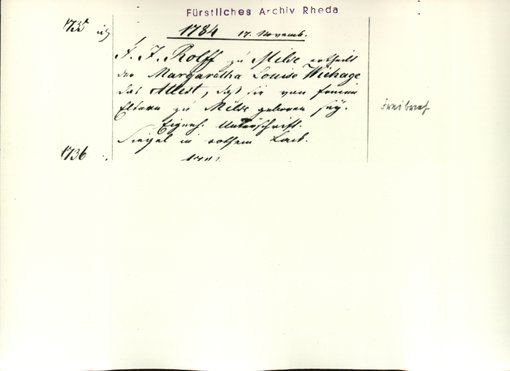 Fürstliches Archiv Rheda
1735
1784 17. Novemb.
J. J. Rolff zu Milse ertheilt
der Margaretha Louise Wichage
das Attest, daß sie von freien
Eltern zu Milse geboren sey.
Eigenh. Unterschrift.
Siegel in rothem Lack.
Freibrief
1736